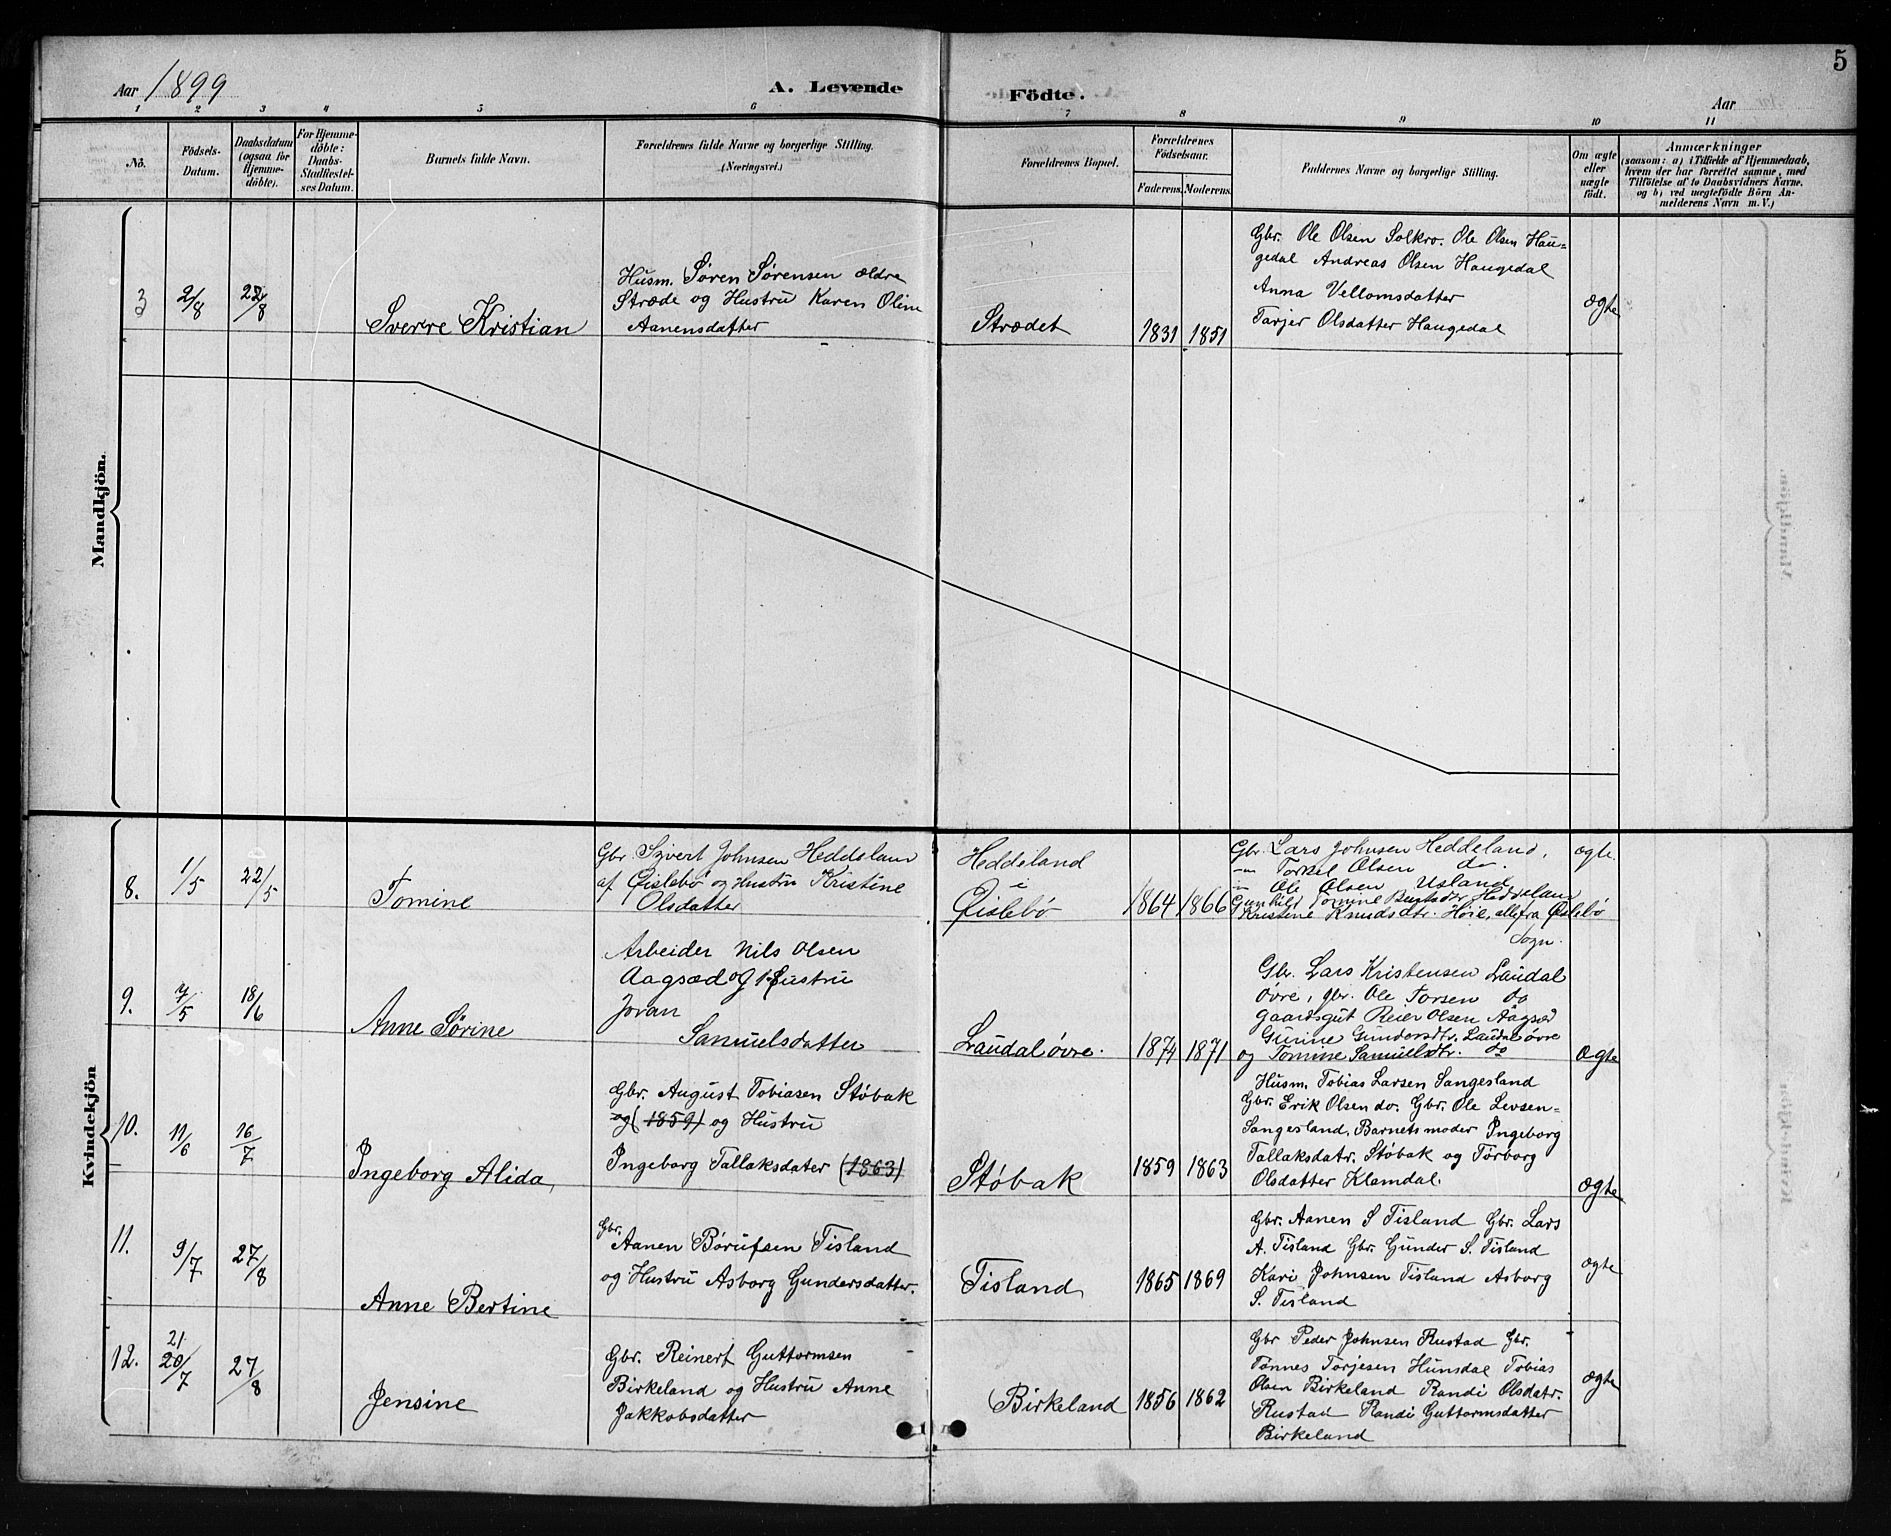 5
Aar 1899
A. Levende Födte.
Aar
1 2 3 4 5 6 7 8 9 10 11
No.
Födsels-
Datum.
Daabsdatum
(ogsaa for
Hjemme-
döbte).
For Hjemme-
döbte:
Daabs-
Stadfæstel-
ses Datum.
Barnets fulde Navn.
Forældrenes fulde Navne og borgerlige Stilling.
(Næringsvei.)
Forældrenes Bopæl.
Forældrenes
Födselsaar.
Faderens. Moderens.
Faddernes Navne og borgerlige Stilling.
Om ægte
eller
uægte
födt.
Anmærkninger
(saasom: a) i Tilfælde af Hjemmedaab,
hvem der har forrettet samme, med
Tilföielse af to Daabsvidners Navne.
og b) ved uægtefödte Börn An-
melderens Navn m. V.)
Mandkjön.
3
2/8
22/8
Sverre Kristian
Husm. Søren Sørensen ældre
Stræde og Hustru Karen Oline
Aanensdatter
Strædet
1831 1851
Gbr. Ole Olsen Solkro. Ole Olsen Hau-
gedal Andreas Olsen Haugedal
Anna Vellomsdatter
Tarjer Olsdatter Haugedal
ægte
Kvindekjön
8.
1/5
22/5
Tomine
Gbr. Sivert Johnsen Heddeland
af Øislebø og Hustru Kristine
Olsdatter
Heddeland
i
Øislebø
1864 1866
Gbr. Lars Johnsen Heddeland,
— Torkel Olsen do.
— Ole Olsen Usland
Gunhild Tomine Bentsdtr. Heddeland
Kristine Knudsdtr. Høie, alle fra Øislebø
Sogn.
ægte.
9.
7/5
18/6
Anne Sørine
Arbeider Nils Olsen
Aagsæd og Hustru
Joran
Samuelsdatter
Laudal øvre.
1874 1871
Gbr. Lars Kristensen Laudal
øvre, gbr. Ole Torsen do
gaardsgut Reier Olsen Aagsæd
Gunine Gundersdtr. Laudal øvre
og Tomine Samuelsdtr. do
ægte
10.
11/6
16/7
Ingeborg Alida,
Gbr. August Tobiasen Støbak
og (1859) og Hustru
Ingeborg Tallaksdater (1863)
Støbak
1859 1863
Husm. Tobias Larsen Sangesland
Gbr. Erik Olsen do. Gbr. Ole Levsen-
Sangesland, Barnets moder Ingeborg
Tallaksdatr. Støbak og Torborg
Olsdatter Klemdal.
ægte
11.
9/7
27/8
Anne Bertine
Gbr.
Aanen Børufsen Tisland
og Hustru Asborg Gundersdatter.
Tisland
1865 1869
Gbr. Aanen S Tisland Gbr. Lars
A. Tisland Gbr. Gunder S. Tisland
Kari Johnsen Tisland Asborg
S. Tisland
ægte
12.
21
20/7
27/8
Jensine
Gbr. Reinert Guttormsen
Birkeland og Hustru Anne
Jakkobsdatter
Birkeland
1856 1862
Gbr Peder Johnsen Rustad Gbr.
Tønnes Torjesen Hunsdal Tobias
Olsen Birkeland Randi Olsdatr.
Rustad Randi Guttormsdatter
Birkeland
ægte